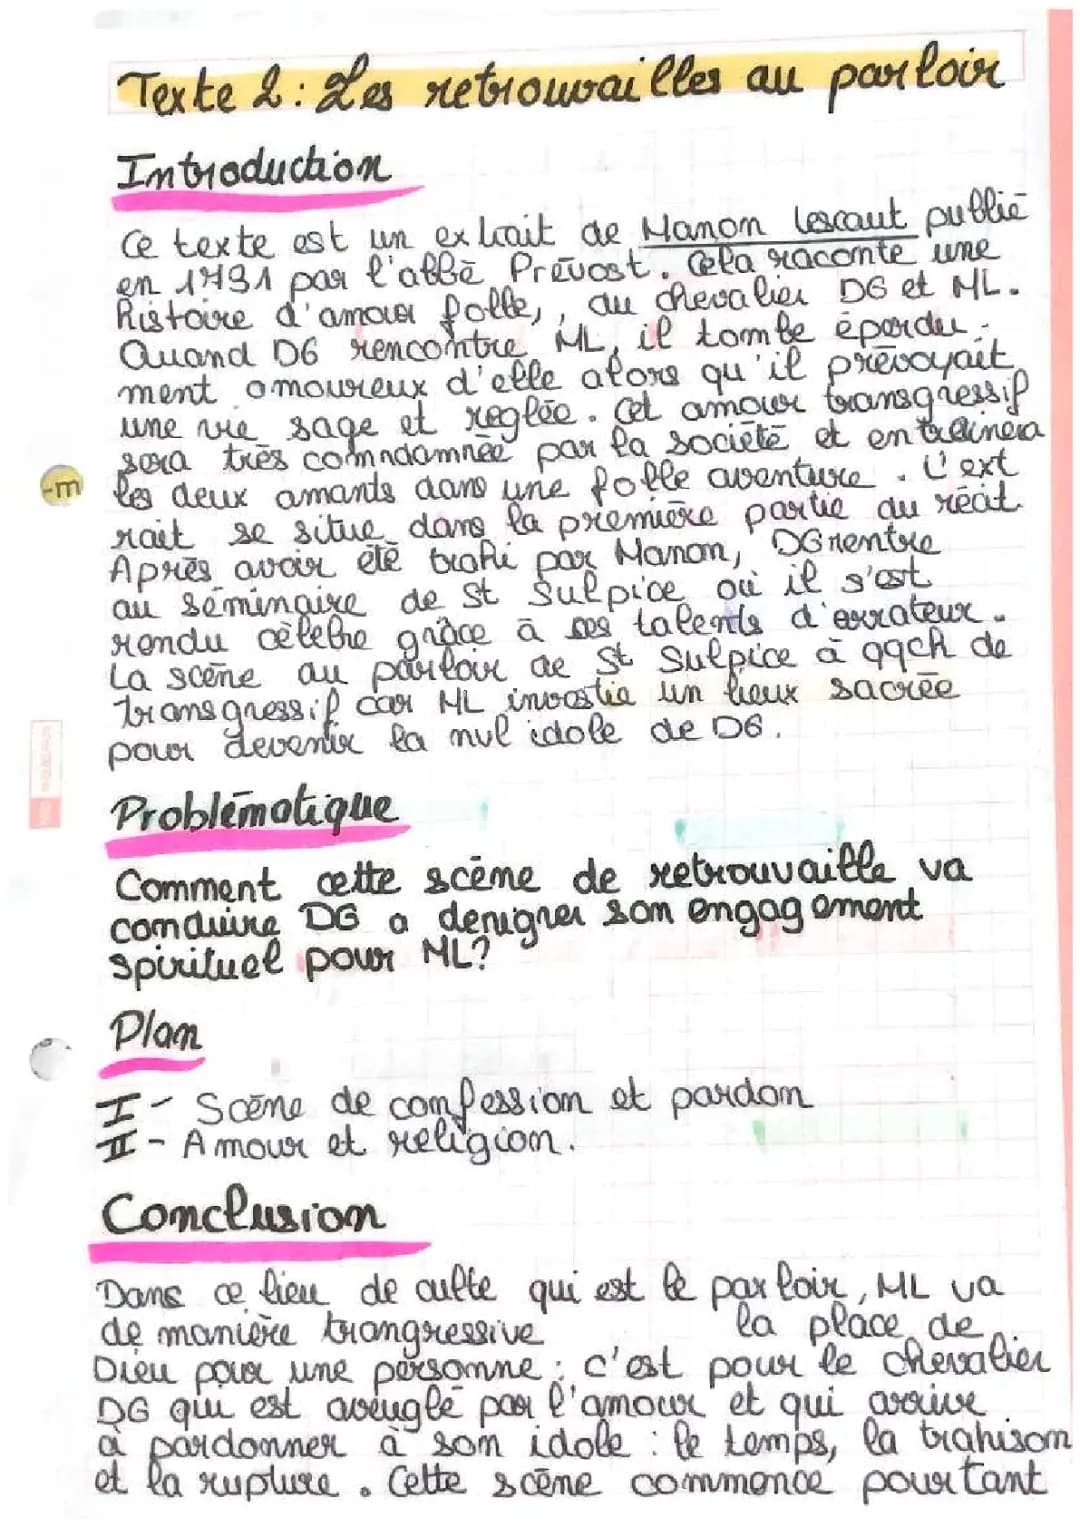 Texte 2 : Les retrouvailles au parloir
Introduction
Ce texte est un extrait de Manon Lescaut publié
en 1731 par l'abbé Prévost. Cela raconte une
histoire d'amour folle, , du chevalier DG et ML.
Quand DG rencontre ML, il tombe éperdu-
ment amoureux d'elle alors qu'il prévoyait
une vie sage et reglée. Cet amour transgressif
sera très comndamnée par la société et entrainera
les deux amants dans une folle aventure. L'ext
-m
rait se situe dans la première partie du récit.
Après avoir été trahi par Manon, DG rentre
au séminaire de St Sulpice où il s'est
rendu célèbre grâce à ses talents d'errateur.
La scène au parloir de St Sulpice à qqch de
transgressif car ML investie un lieux sacrée
pour devenir la nvl idole de DG.
Problématique
Comment cette scène de retrouvaille va
conduire DG a denigrer son engagement
spirituel pour ML?
Plan
I - Scène de confession et pardon
II - Amour et religion.
Conclusion
Dans ce lieu de culte qui est le parloir, ML va
de manière trangressive la place de
Dieu pour une personne : c'est pour le chevalier
DG qui est aveuglé par l'amour et qui arrive
à pardonner à son idole : le temps, la trahison
et la rupture. Cette scène commence pourtant